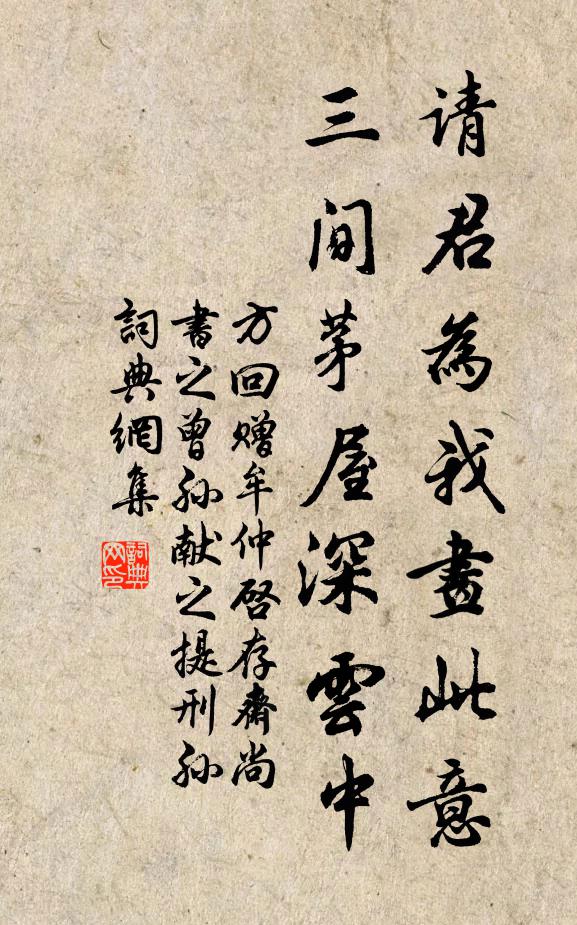 请君為我畫此意
三间茅屋深雲中
方回赠牟仲啓存齋尚
書之曾孙献之提刑孙
詞典網集
詞典网印